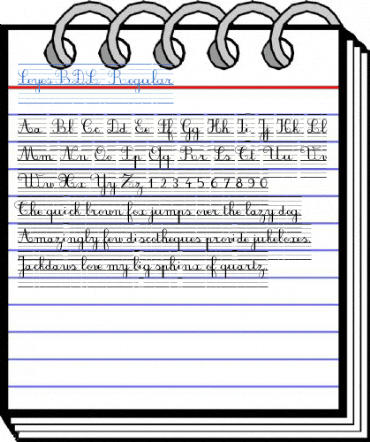 Loyes BDL Regular
Aa Bb Cc Dd Ee Ff Gg Hh Ii Jj Kk Ll
Mm Nn Oo Pp Qq Rr Ss Tt Uu Vv
Ww Xx Yy Zz 1 2 3 4 5 6 7 8 9 0
The quick brown fox jumps over the lazy dog.
Amazingly few discotheques provide jukeboxes.
Jackdaws love my big sphinx of quartz.